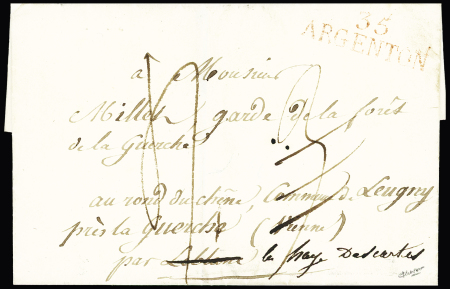 35
ARGENTON
a Monsieur
Millet garde de la forêt
de la Guerche
au rond du chêne, Commune de Leugny
près la Guerche (Vienne)
par Leblanc la haye Descartes